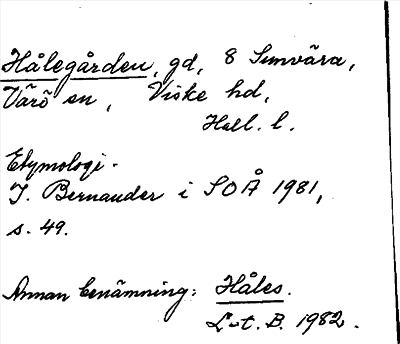 Hålegården, gd, 8 Sunvära,
Värö sn, Viske hd,
Hall. l.
Etymologi.
I. Bernander i SOÅ 1981,
s. 49.
Annan benämning: Håles.
L-t. B. 1982.